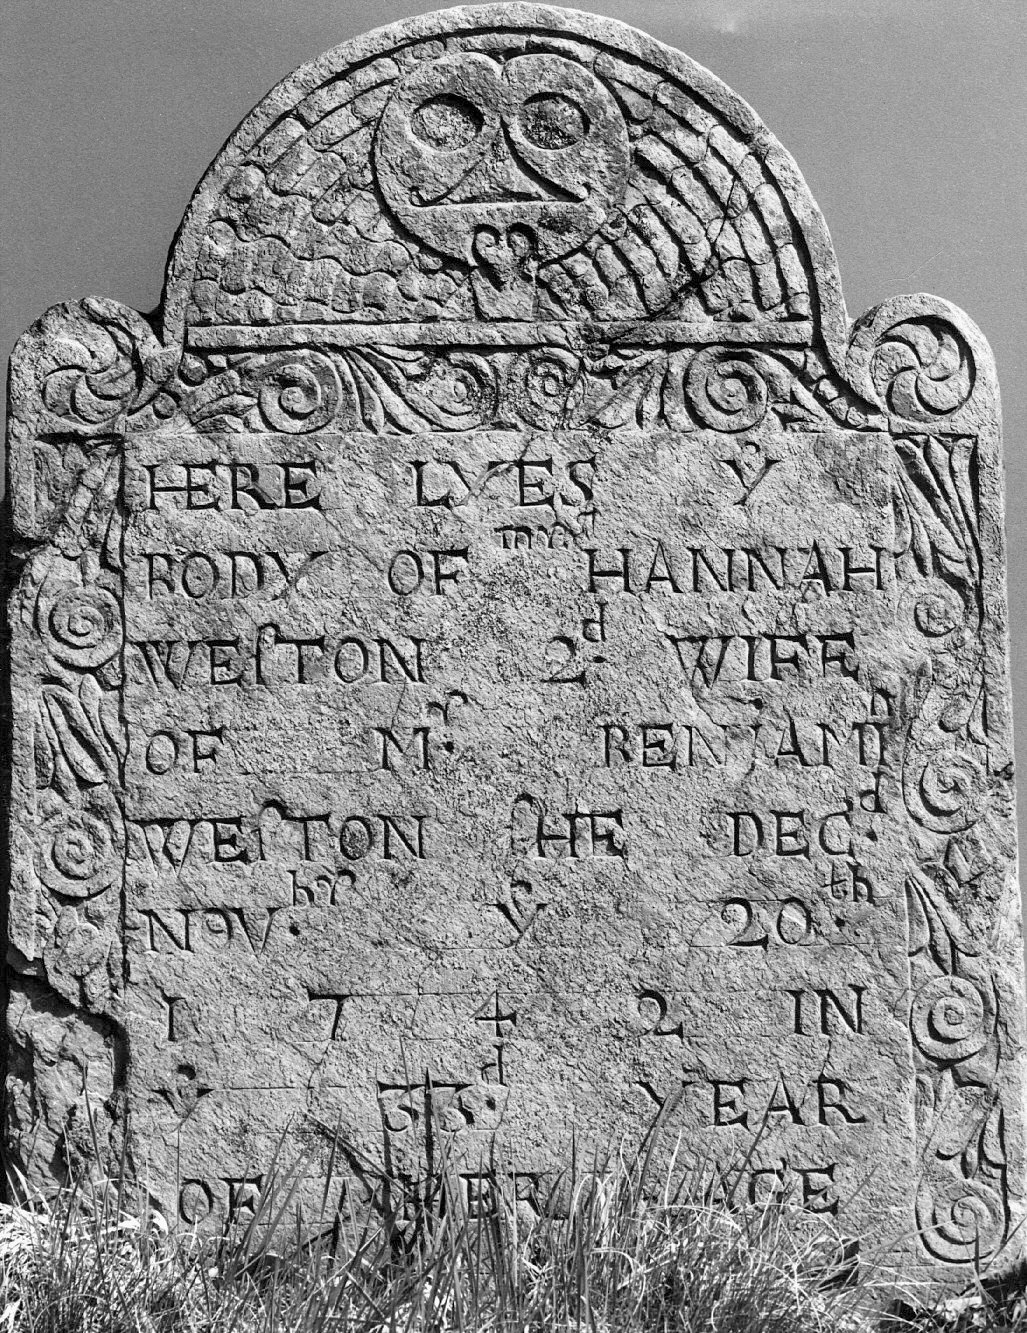 HERE LYES Yᵉ
BODY OF mʳˢ HANNAH
WEſTON 2ᵈ WIFE
OF Mʳ. BENJAMIⁿ
WEſTON ſHE DECᵈ.
NOVʰʳ. yᵉ 20.ᵗʰ
1742 IN
yᵉ 53.ᵈ YEAR
OF HER AGE